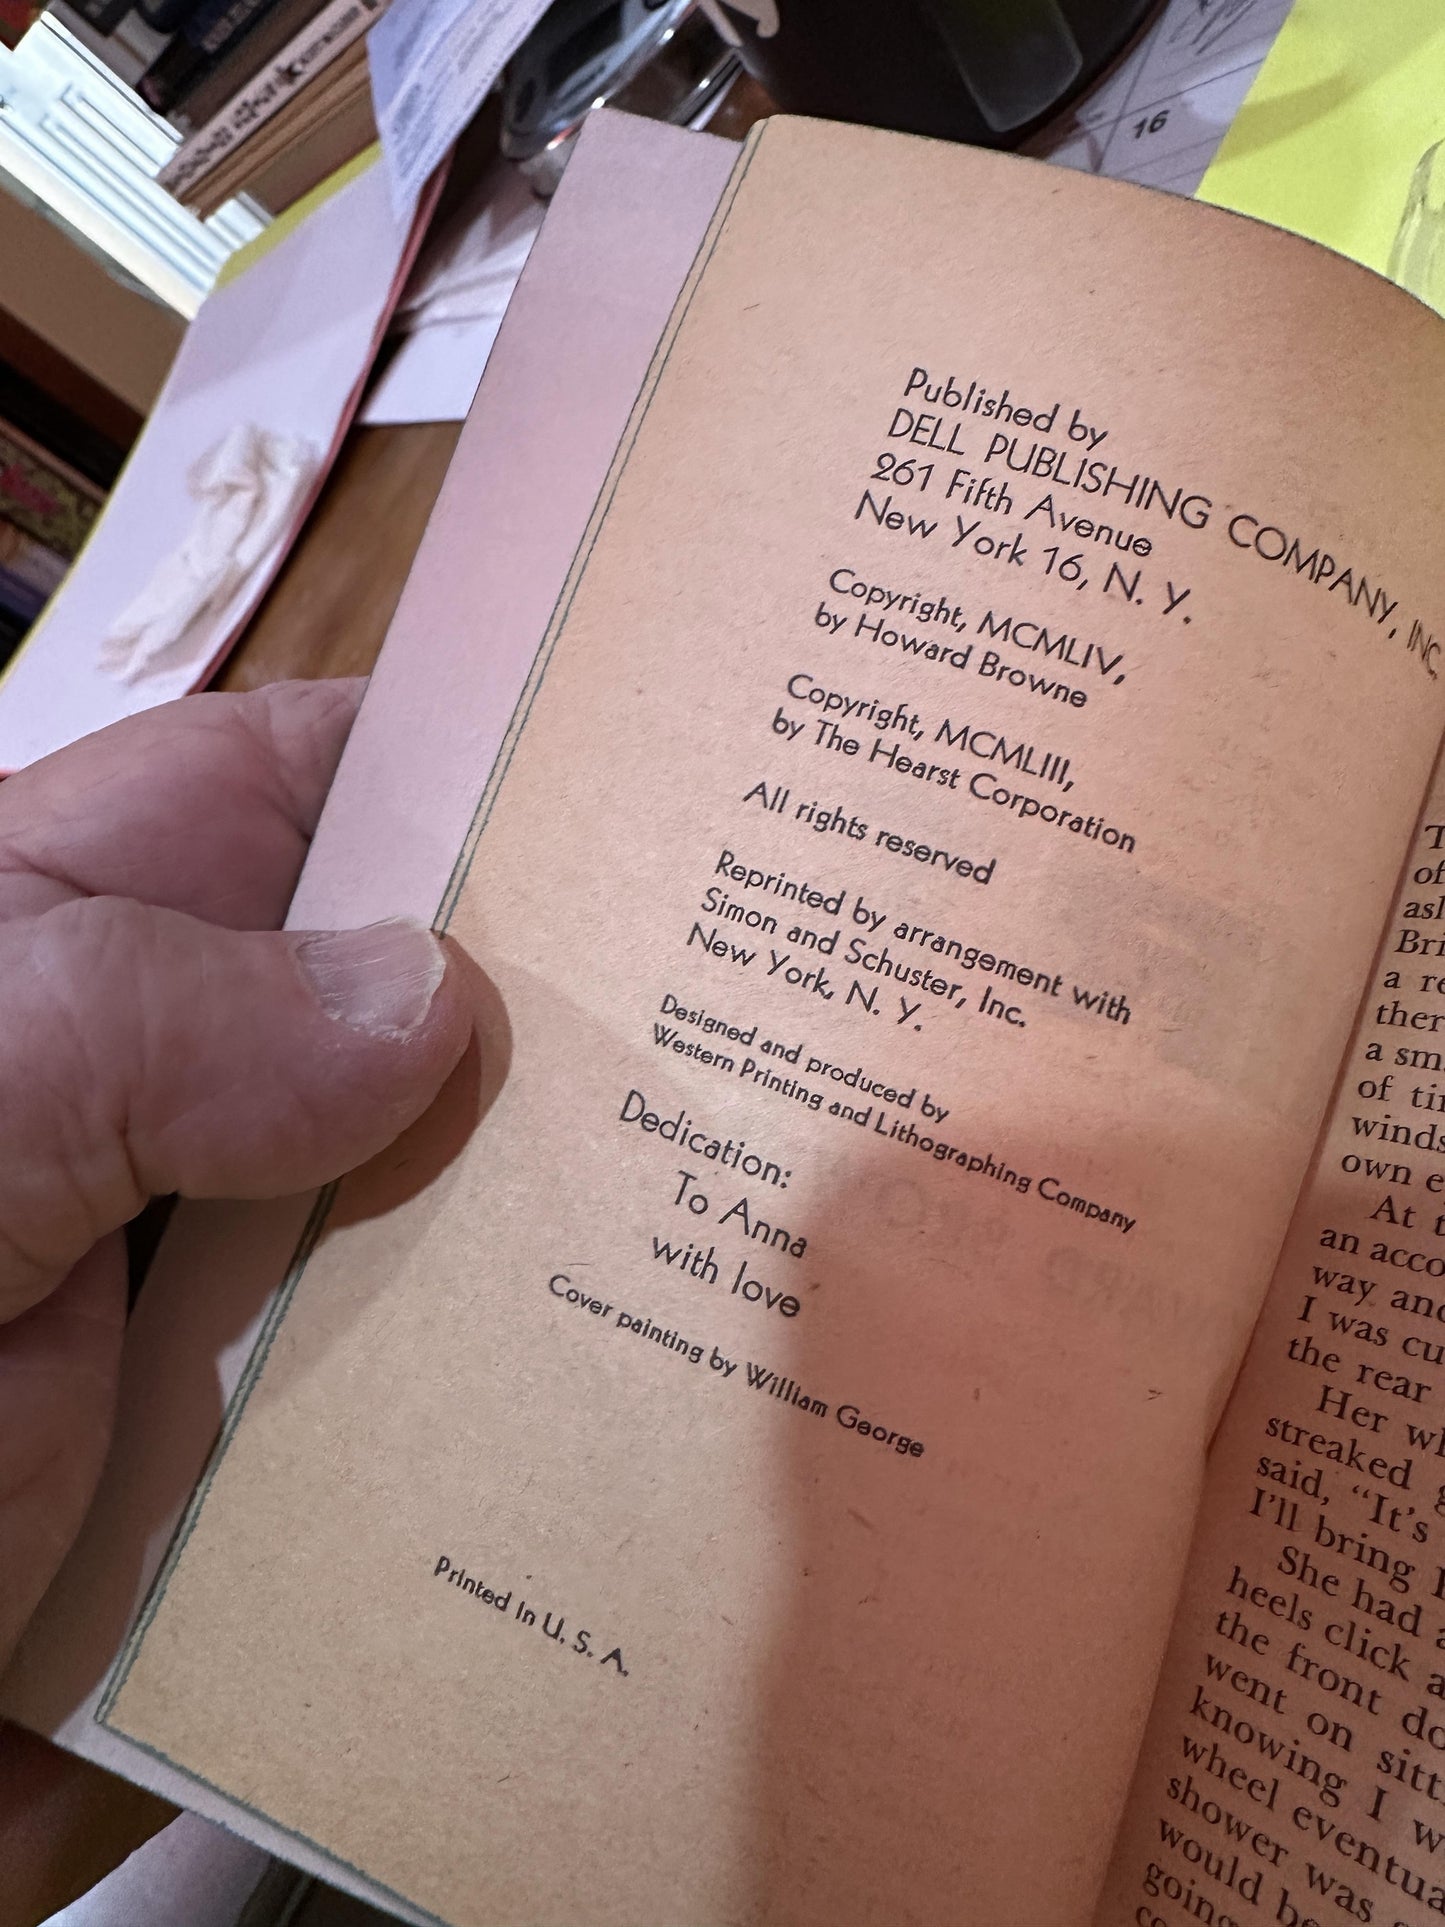 16
Published by
DELL PUBLISHING COMPANY, INC.
261 Fifth Avenue
New York 16, N. Y.
Copyright, MCMLIV,
by Howard Browne
Copyright, MCMLIII,
by The Hearst Corporation
All rights reserved
Reprinted by arrangement with
Simon and Schuster, Inc.
New York, N. Y.
Designed and produced by
Western Printing and Lithographing Company
Dedication:
To Anna
with love
Cover painting by William George
Printed in U. S. A.
of
a
a
of
winds
own
At
an
way
I was
the rear
Her
streaked
said, "It's
I'll bring
She had
heels click
the front
went on
knowing I
wheel
shower was
would